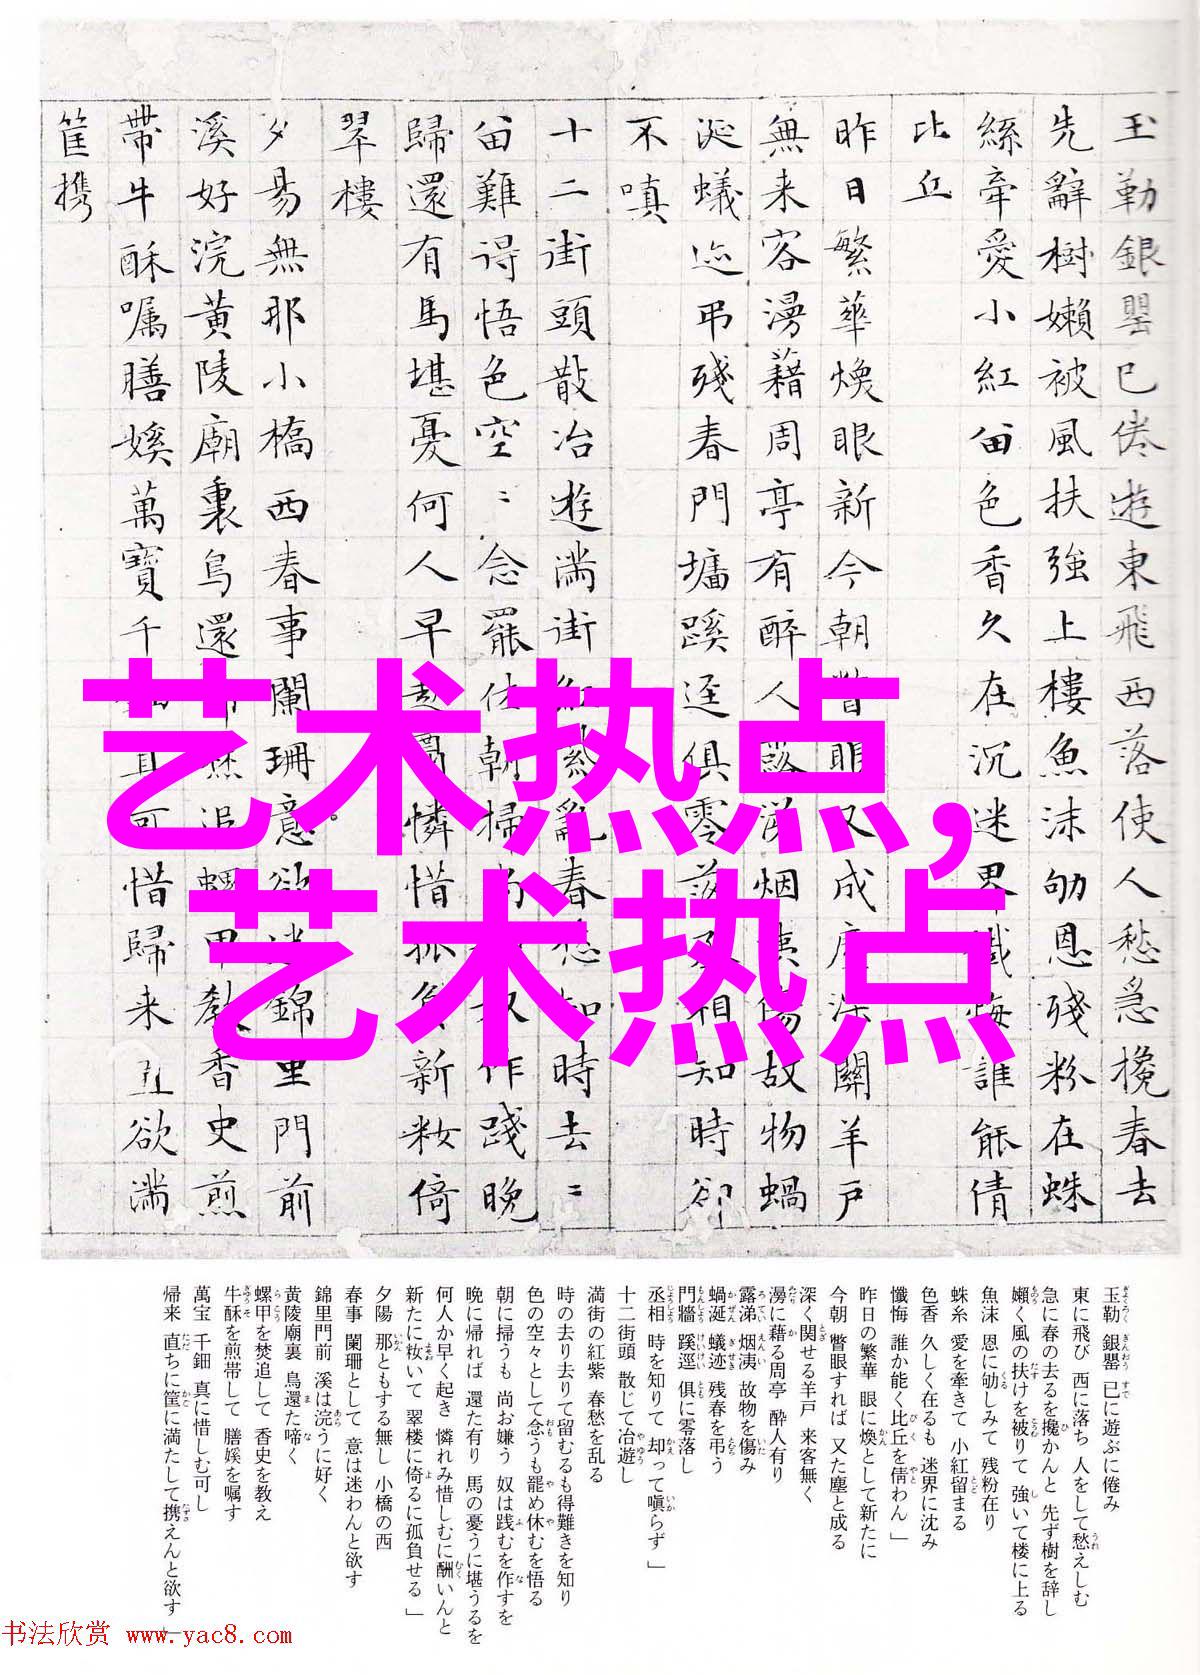 玉勒銀罌已倦遊東飛西落使人愁急攙春去
先辭樹嬾被風扶強上樓魚沫劬恩殘粉在蛛
絲牽愛小紅留色香久在沉迷界懺悔誰能倩
比丘
昨日繁華煥眼新今朝瞥眼又成塵深關羊戶
無来客漫藉周亭有醉人露涕烟洟傷故物蝸
涎蟻迹弔殘春門墻蹊逕俱零落丞相知時卻
不嗔
十二街頭散冶遊滿街紅紫亂春愁知時去〻
留難得悟色空〻念罷休朝掃尚嫌奴作踐晚
歸還有馬堪憂何人早起酬憐惜孤負新妝倚
翠樓
夕昜無那小橋西春事闌珊意欲迷錦里門前
溪好浣黄陵廟裏鳥還啼焚追螺甲教香史煎
帶牛酥嘱膳媛萬寶千鈿真可惜歸来直欲滿
筐携
艺术热点,
艺术热点
玉勒 銀罌 已に遊ぶに倦み
東に飛び 西に落ち 人をして愁えしむ
急に春の去るを攙かんと 先ず樹を辞し
嬾く風の扶けを被りて 強いて楼に上る
魚沫 恩に劬しみて 残粉在り
蛛糸 愛を牽きて 小紅留まる
色香 久しく在るも 迷界に沈み
懺悔 誰か能く比丘を倩わん」
昨日の繁華 眼に煥として新たに
今朝 瞥眼すれば 又た塵と成る
深く関せる羊戸 来客無く
漫に藉る周亭 酔人有り
露涕 烟洟 故物を傷み
蝸涎 蟻迹 残春を弔う
門牆 蹊逕 俱に零落し
丞相 時を知りて 却って嗔らず」
十二街頭 散じて冶遊し
満街の紅紫 春愁を乱る
時の去り去りて留むるも得難きを知り
色の空々として念うも罷め休むを悟る
朝に掃うも 尚お嫌う 奴は践むを作すを
晩に帰れば 還た有り 馬の憂うに堪うるを
何人か早く起き 憐れみ惜しむに酬いんと
新たに妝いて 翠楼に倚るに孤負せる」
夕陽 那ともする無し 小橋の西
春事 闌珊として 意は迷わんと欲す
錦里門前 溪は浣うに好く
黄陵廟裏 鳥還た啼く
螺甲を焚追して 香史を教え
牛酥を煎帯して 膳媛を嘱す
萬宝 千鈿 真に惜しむ可し
帰来 直ちに筐に満たして携えんと欲す」
书法欣赏 www.yac8.com